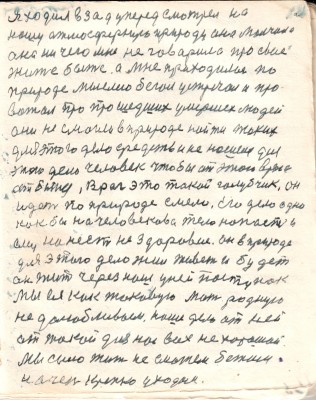 Я ходил взад уперед смотрел на
нашу атмосферную природу она молчала
она ничего мне не говорила про свое
жите бытье. а мне приходилось по
природе мыслию бегом встречат и про
вожат про прошедших умерших людей
они не смогли в природе найти таких
для этого дело средств и не нашли для
этого дело человек чтобы от этого врага
отбыт, Враг это такой голубчик, он
идет по природе смело, его дело одно
как бы на человекова тело напасть и
ему нанест не здоровие. он в природе
для этого дело жил живет и будет
он жит через наш у ней поступок
мы ея как таковую мат родную
не долюбливаем, наше дело от ней
от такой для нас всех не хорошой.
мы с нею жит не сможем бежим.
на чем крепко уходим.